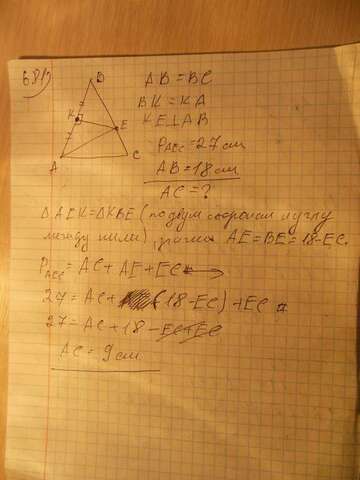 681)
B
AB = BC
BK = KA
K
E
KE⊥AB
P_AEC = 27см
AB = 18см
A
C
AC = ?
ΔAEK=ΔKBE (по двум сторонам и углу
между ними) AE=BE=18-EC.
P_AEC = AC + AE + EC
27 = AC + (18 - EC) + EC
27 = AC + 18 - EC + EC
AC = 9см